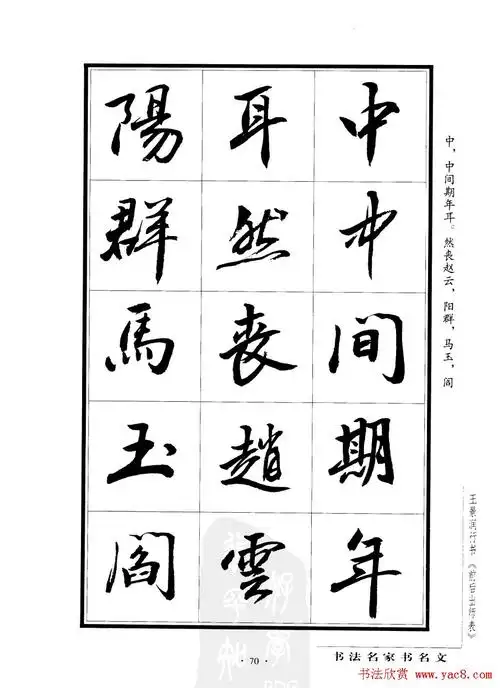 中中间期年
耳然丧趙雲
陽群馬玉閻
中，中间期年耳。然丧赵云，阳群，马玉，阎
王景润行书《前后出师表》
·70·
书法名家书名文
书法欣赏 www.yac8.com